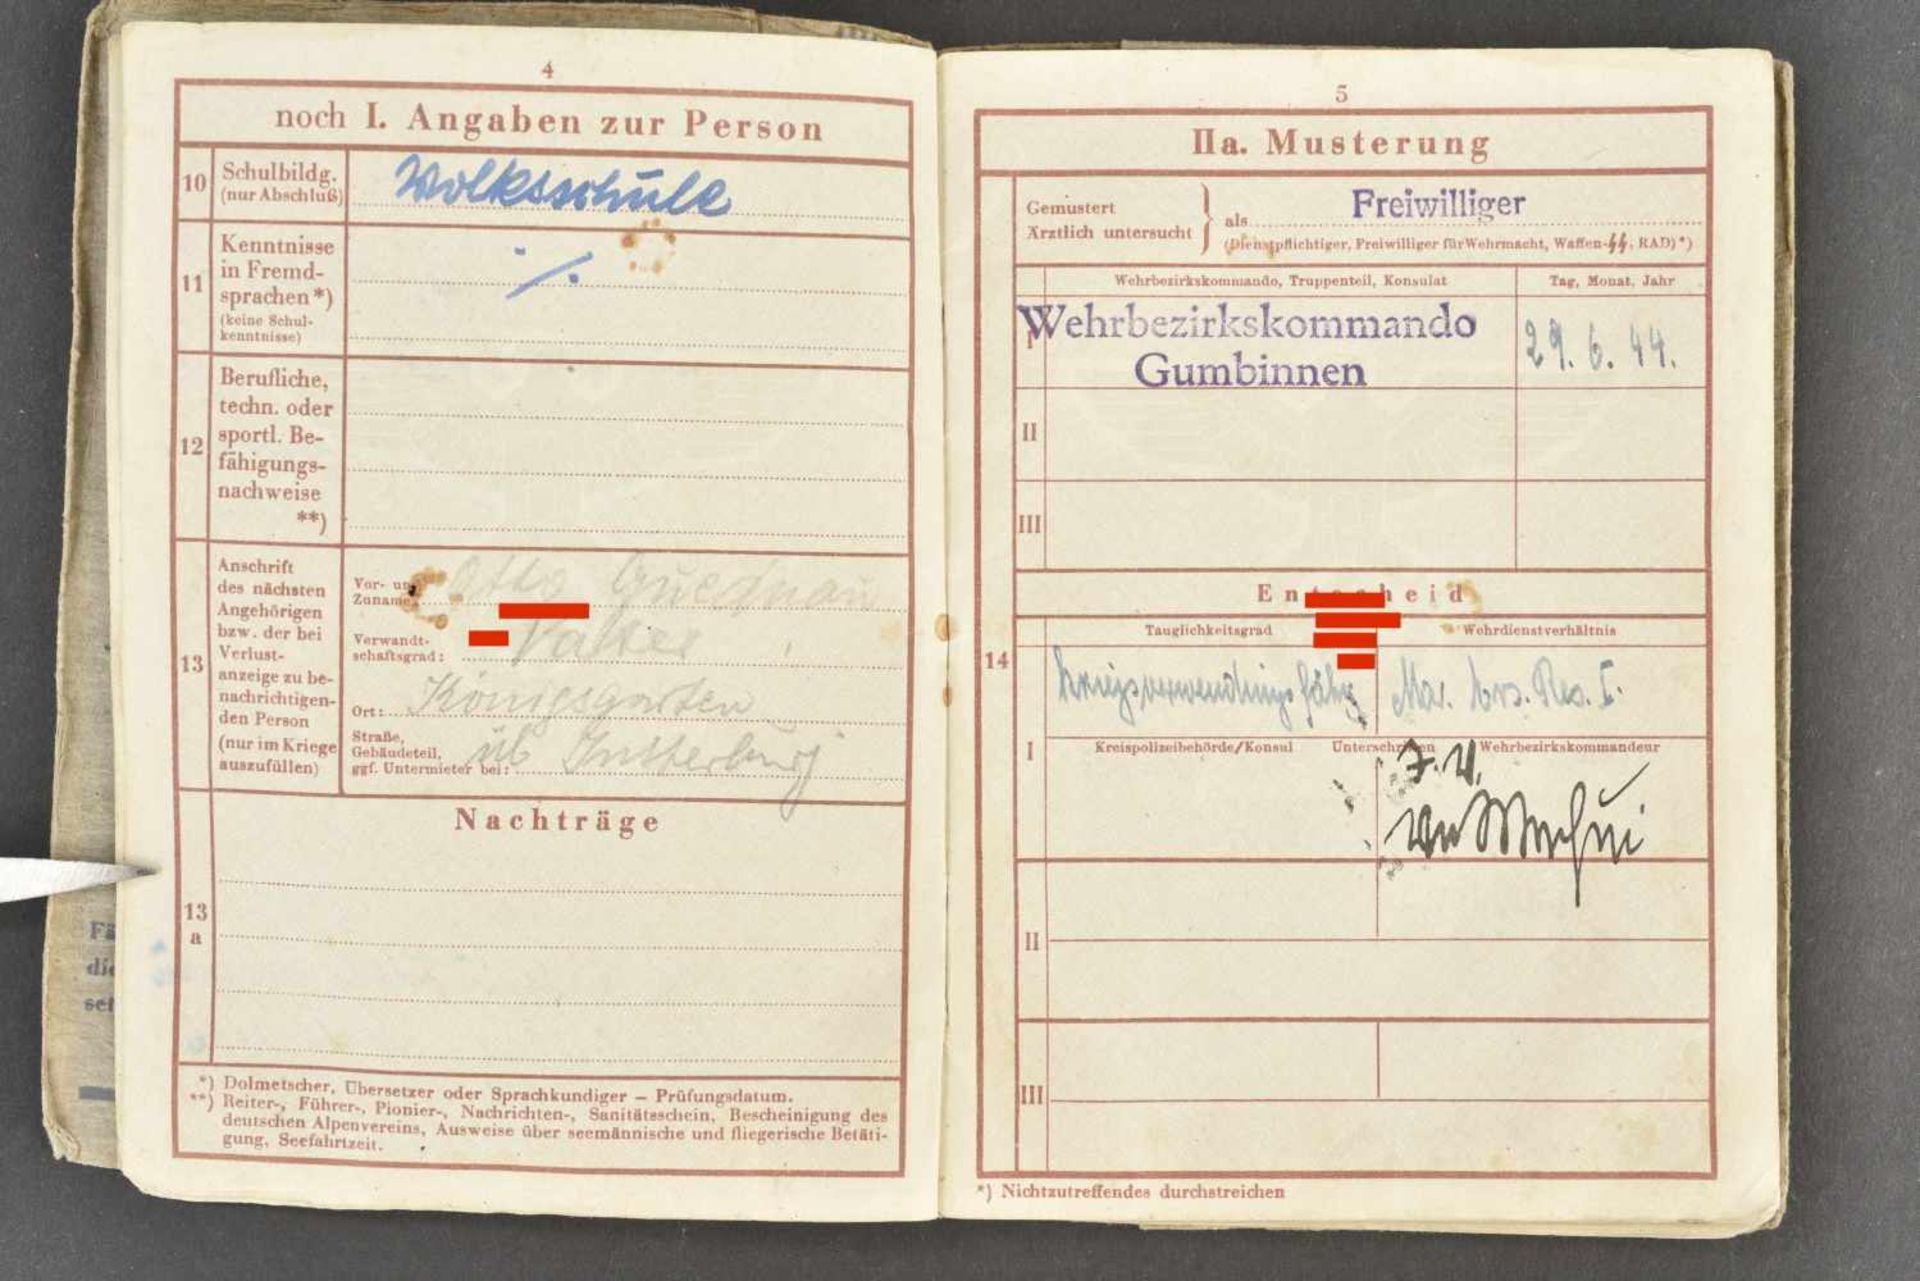 4
noch I. Angaben zur Person
10
Schulbildg.
(nur Abschluß)
Volksschule
11
Kenntnisse
in Fremd-
sprachen*)
(keine Schul-
kenntnisse)
./.
12
Berufliche,
techn. oder
sportl. Be-
fähigungs-
nachweise
**)
13
Anschrift
des nächsten
Angehörigen
bzw. der bei
Verlust-
anzeige zu be-
nachrichtigen-
den Person
(nur im Kriege
auszufüllen)
Vor- und
Zuname
Otto
Verwandt-
schaftsgrad:
Vater
Ort:
Königsgarten
Straße,
Gebäudeteil,
ggf. Untermieter bei:
üb Insterburg
Nachträge
13
a
*) Dolmetscher, Übersetzer oder Sprachkundiger – Prüfungsdatum.
**) Reiter-, Führer-, Pionier-, Nachrichten-, Sanitätsschein, Bescheinigung des
deutschen Alpenvereins, Ausweise über seemännische und fliegerische Betäti-
gung, Seefahrtzeit.
5
IIa. Musterung
Gemustert
Ärztlich untersucht
als
Freiwilliger
(Dienstpflichtiger, Freiwilliger für Wehrmacht, Waffen-ᛋᛋ, RAD)*)
Wehrbezirkskommando, Truppenteil, Konsulat
Tag, Monat, Jahr
I
Wehrbezirkskommando
Gumbinnen
29. 6. 44.
II
III
Entscheid
14
Tauglichkeitsgrad
Wehrdienstverhältnis
kriegsverwendungsfähig
Mar. Ers. Res. I.
I
Kreispolizeibehörde/Konsul
Unterschriften
Wehrbezirkskommandeur
J. V.
II
III
*) Nichtzutreffendes durchstreichen
Fä
die
set